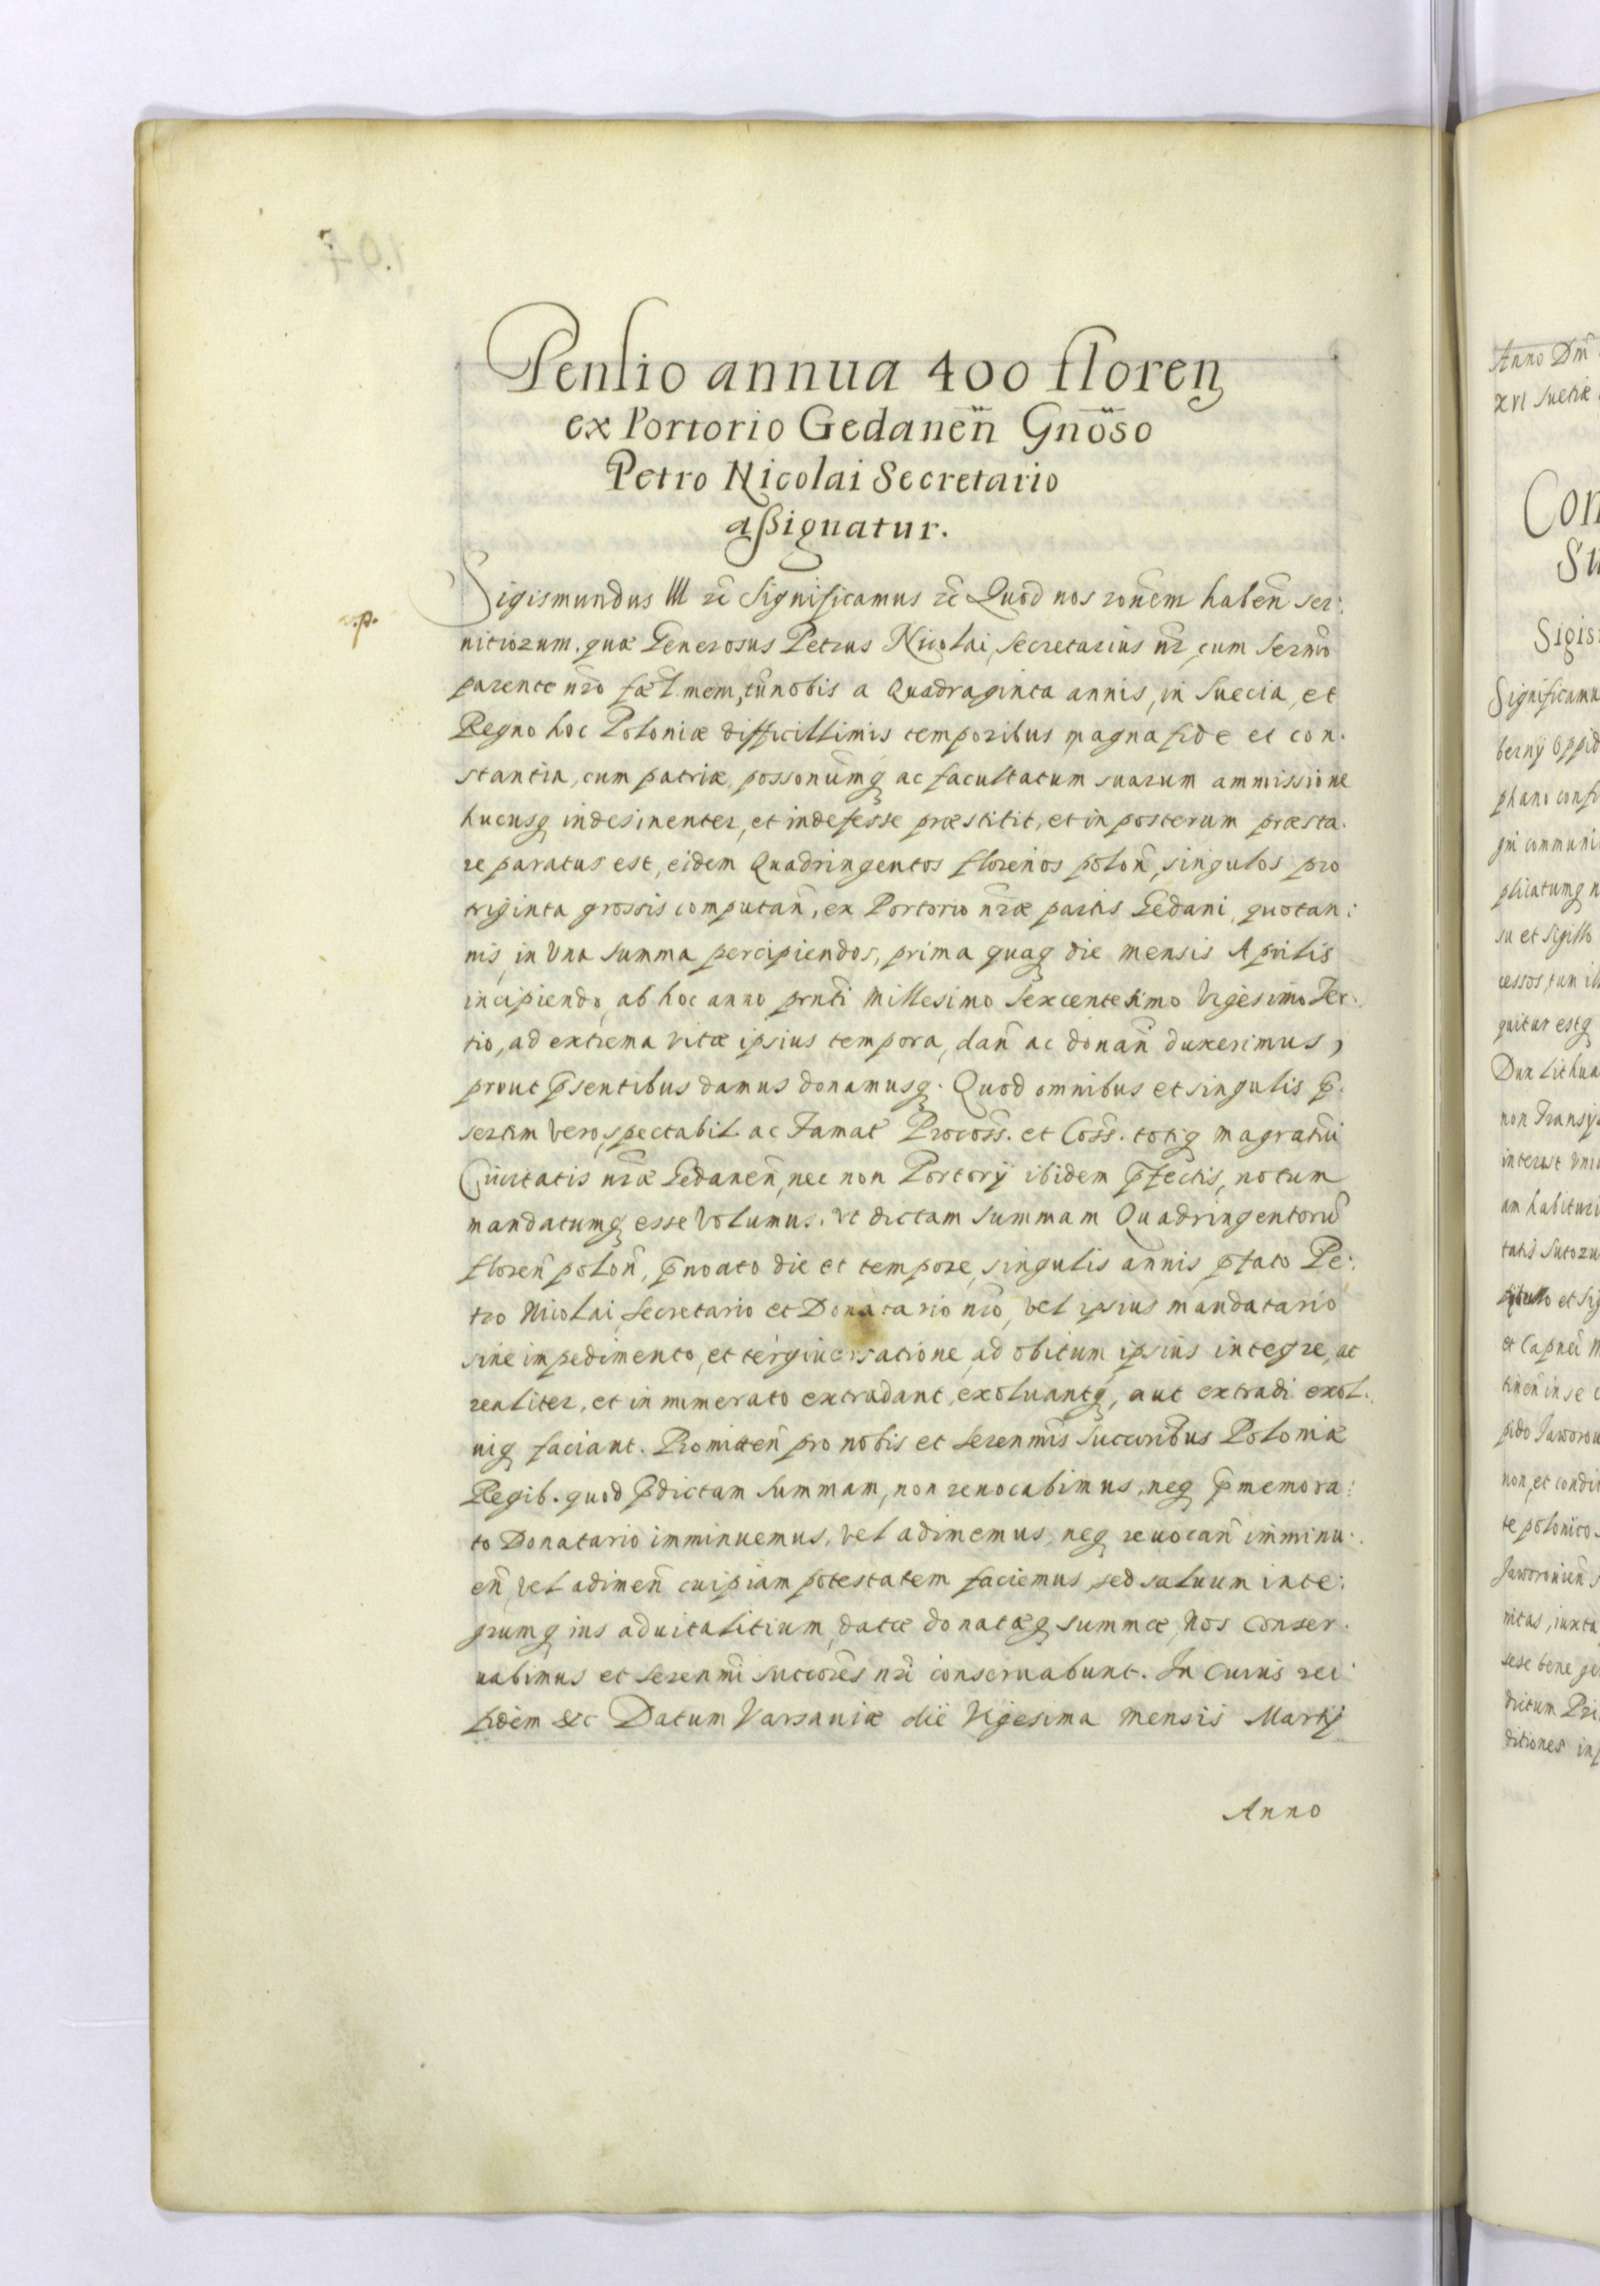 Pensio annua 400 floren
ex Portorio Gedaneñ Gnoso
Petro Nicolai Secretario
aßignatur.
Sigismundus III etc Significamus etc Quod nos rõnem habeñ ser:
uitiorum, quæ Generosus Petrus Nicolai, Secretarius nr̃, cum Sermõ
parente nr̃o fæl. mem, tũ nobis a Quadraginta annis, in Suecia, et
Regno hoc Poloniæ difficillimis temporibus magna fide et con.
stantia, cum patriæ, possonũmq ac facultatum suarum ammissione
hucusq indesinenter, et indefesse præstitit, et in posterum præsta.
re paratus est, eidem Quadringentos florenos poloñ, singulos pro
triginta grossis computañ, ex Portorio nr̃æ partis Gedani, quotan:
nis, in Vna summa percipiendos, prima quaq die mensis Aprilis
incipiendo, ab hoc anno prñti Millesimo Sexcentesimo Vigesimo Ter.
tio, ad extrema vitæ ipsius tempora, dañ ac donañ duxerimus,
prout p̃sentibus damus donamusq. Quod omnibus et singulis p̃.
sertim vero, spectabil. ac Famat̃ Procoss̃. et Coss̃. totiq magratũi
Ciuitatis nr̃æ Gedaneñ, nec non Portorij ibidem p̃fectis, notum
mandatumq esse Volumus. vt dictam summam Quadringentorũ
floreñ poloñ, p̃noato die et tempore, singulis annis p̃fato Pe:
tro Nicolai, Secretario et Donatario nr̃o, vel ipsius mandatario
sine impedimento, et tergiuersatione, ad obitum ipsius integre, ac
realiter, et in numerato extradant, exoluantq, aut extradi exol.
uiq faciant. Promitteñ pro nobis et Serenmĩs Succoribus Poloniæ
Regib. quod p̃dictam summam, non reuocabimus, neq p̃memora:
to Donatario imminuemus, vel adimemus, neq reuocañ imminu.
eñ, vel adimeñ cuipiam potestatem faciemus, sed saluum inte:
grumq ius aduitalitium, datæ donatæq summæ, Nos conser.
uabimus et Serenmĩ succorẽs nr̃i conseruabunt. In Cuius rei
fidem etc Datum Varsauiæ die Vigesima Mensis Martij
Anno
Anno Dm̃
XVI Suetiæ
Con
Su
Significamu
phano conf
gni communi
plicatumq n
su et sigillo
cessos, tum il
guitur estq
Dux Lithua
non Transy
interest Vni
am habituri
et Capnei M
non, et condi
te polonico
nitas, iuxta
sese bene ge
dictum Pri
ditiones in